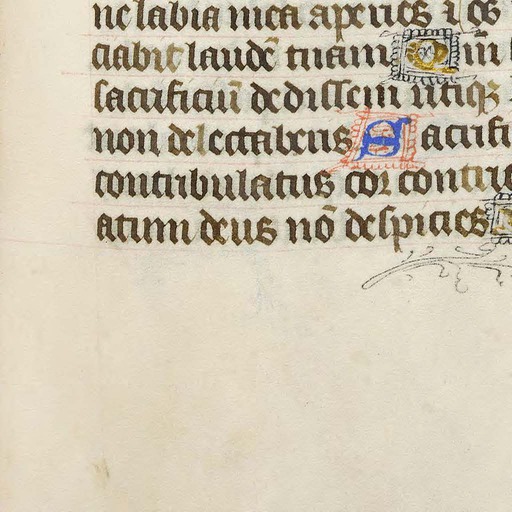 ne labia mea aperies ⁊ os
ciabit laudē tuam Q m̄ s
sacrificiū dedissem utiqꝫ
non delectaberis S acrifi
contribulatus cor contri
atum deus nō despicies